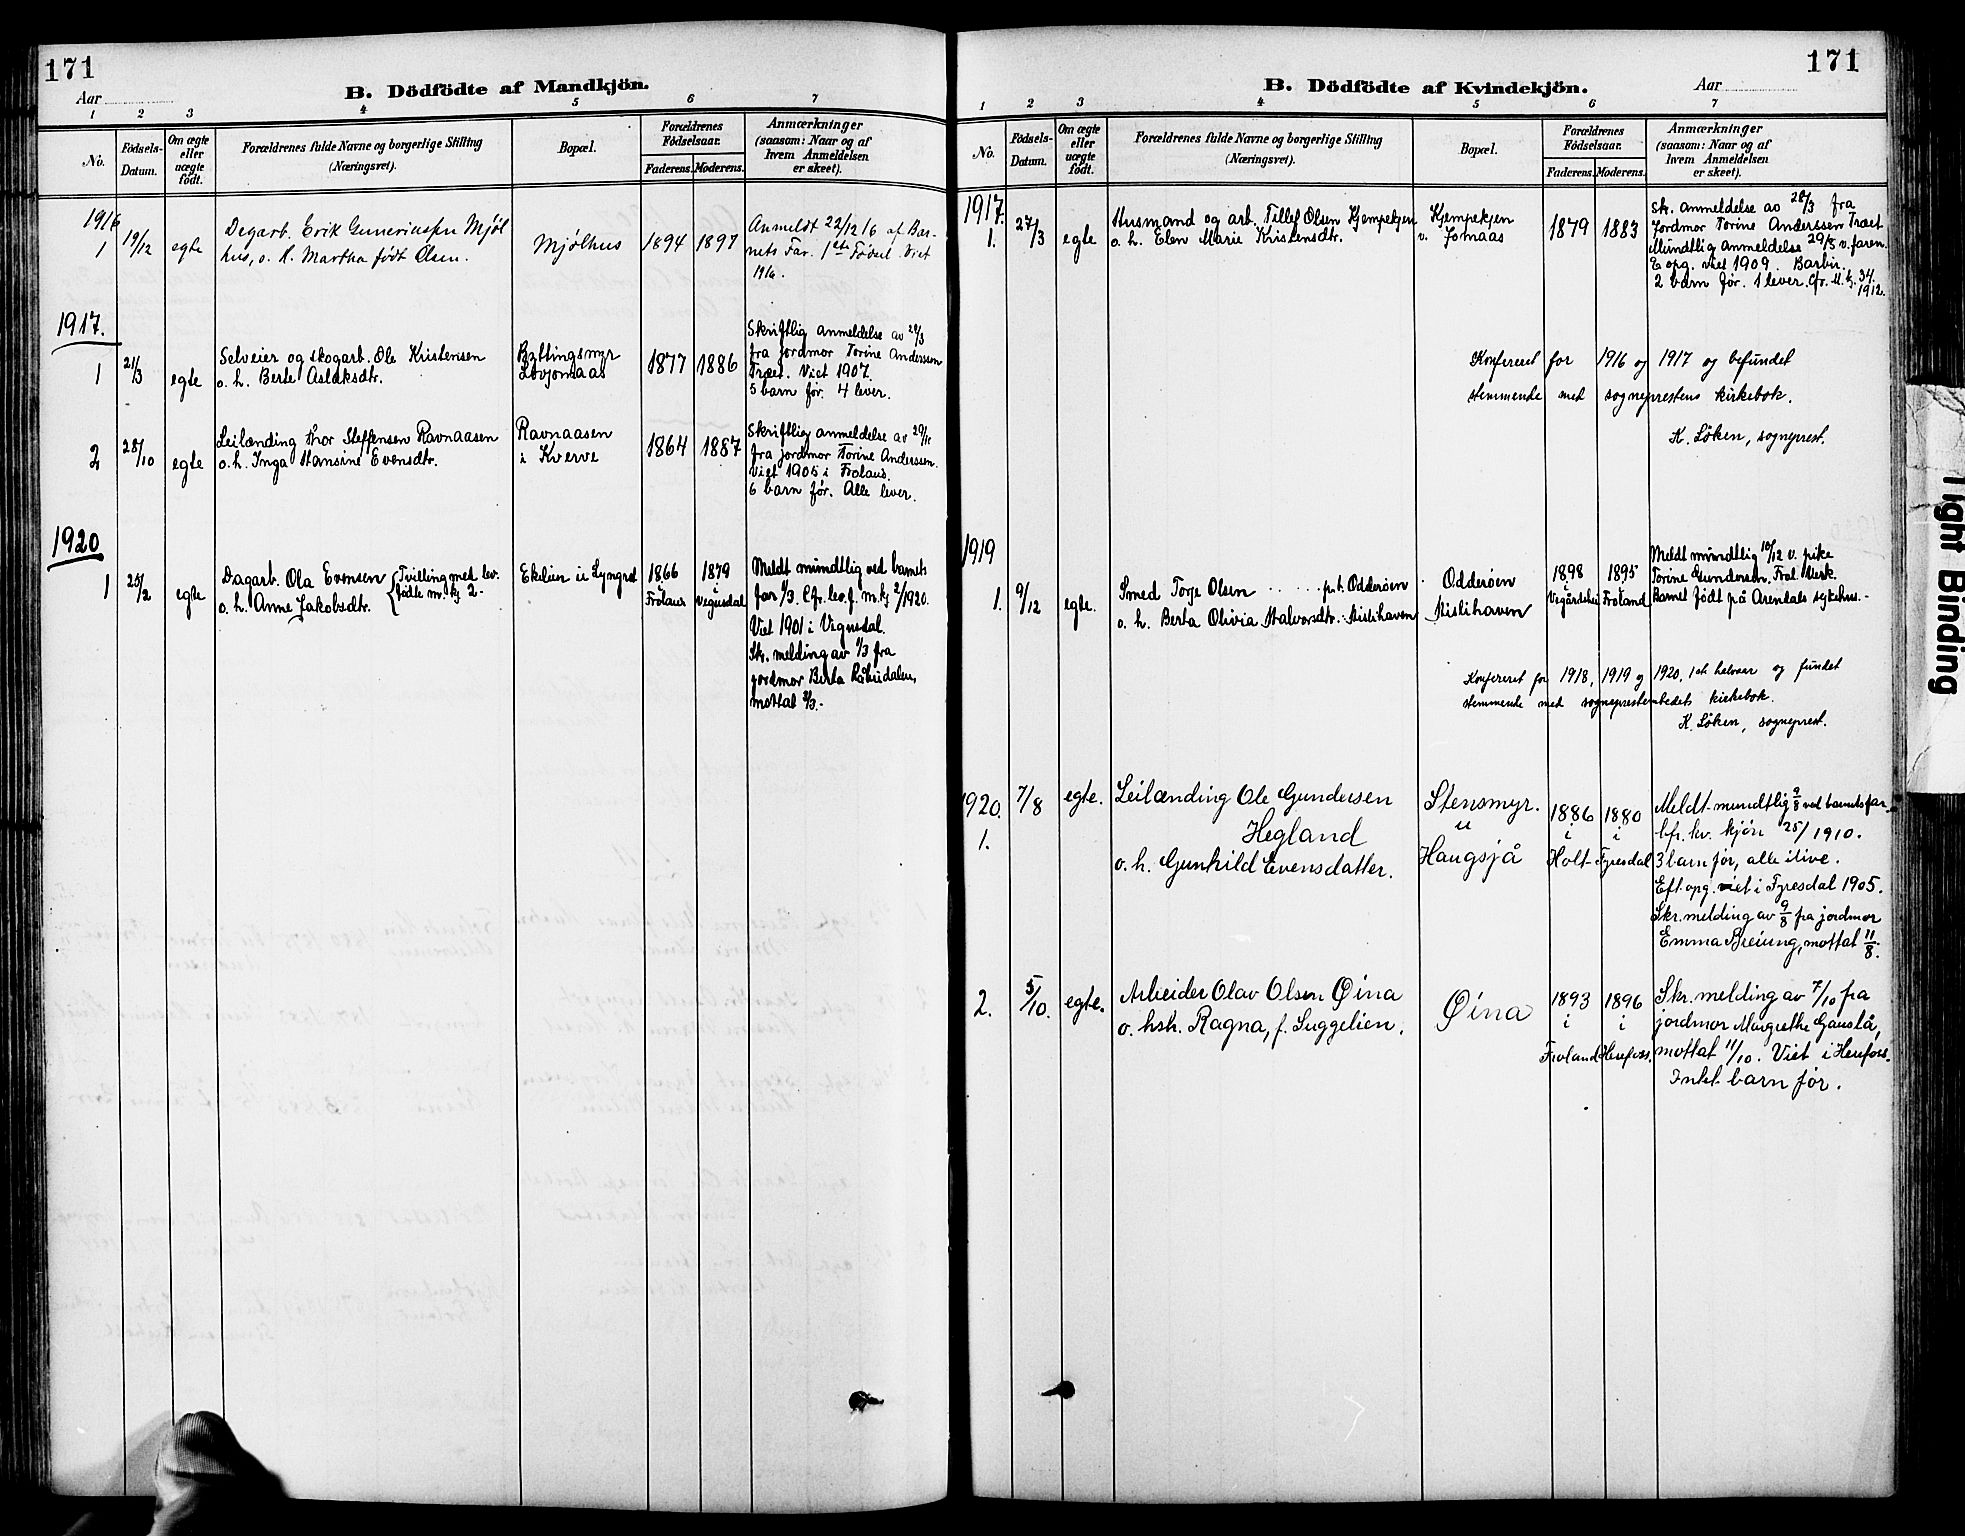 171
Aar
B. Dödfödte af Mandkjön.
1 2 3 4 5 6 7
No.
Födsels-
Datum.
Om ægte
eller
uægte
födt.
Forældrenes fulde Navne og borgerlige Stilling
(Næringsvei).
Bopæl.
Forældrenes
Födselsaar.
Faderens. Moderens.
Anmærkninger
(saasom: Naar og af
hvem Anmeldelsen
er skeet).
1916
1 19/12 egte
Dagarb. Erik Guneriussen Mjøl
hus, o. h. Martha født Olsen.
Mjølhus
1894 1897
Anmeldt 22/12 16 af Bar-
nets Far. 1ste Fødsel. Viet
1916.
1917.
1 21/3 egte
Selveier og skogarb. Ole Kristensen
o. h. Berte Aslaksdtr.
Byttingsmyr
Lovjomaas
1877 1886
Skriftlig anmeldelse av 28/3
fra jordmor Torine Anderssen
Træet. Viet 1907.
5 barn før. 4 lever.
2 28/10 egte
Leilænding Thor Steffensen Ravnaasen
o. h. Inga Hansine Evensdtr.
Ravnaasen
i Kverve
1864 1887
Skriftlig anmeldelse av 29/10
fra jordmor Torine Anderssen.
Viet 1905 i Froland.
6 barn før. Alle lever.
1920
1 25/2 egte
Dagarb. Ola Evensen
o. h. Anne Jakobsdtr.
Tvilling med lev.
fødte m. kj 2.
Ekelien u Lyngrot
1866 1879
Froland Vegusdal
Meldt mundtlig ved barnets
far 1/3. Cfr. lev. f. m. kj 2/1920.
Viet 1901 i Vegusdal.
Sk. melding av 1/3 fra
jordmor Berta
mottat 3/3.
171
Aar
B. Dödfödte af Kvindekjön.
1 2 3 4 5 6 7
No.
Födsels-
Datum.
Om ægte
eller
uægte
födt.
Forældrenes fulde Navne og borgerlige Stilling
(Næringsvei).
Bopæl.
Forældrenes
Födselsaar.
Faderens. Moderens.
Anmærkninger
(saasom: Naar og af
hvem Anmeldelsen
er skeet).
1917.
1. 27/3 egte
Husmand og arb. Tellef Olsen Kjempekjen
o. h. Elen Marie Kristensdtr.
Kjempekjen
v. Jomaas
1879 1883
Sk. anmeldelse av 28/3 fra
Jordmor Torine Anderssen Træet
Mundtlig anmeldelse 29/3 v. faren.
E. opg. viet 1909. Barbir.
2 barn før. 1 lever. Cfr. M. kj. 34.
1912.
Konfereret for 1916 og 1917 og befundet
stemmende med sogneprestens kirkebok.
K. Løken, sogneprest.
1919
1. 9/12 egte.
Smed Torje Olsen p.t. Odderøen
o. h. Berta Olivia Halvorsdtr. Mislihaven
Odderøen
Mislihaven
1898 1895
i
Vegårdshei Froland
Meldt mundtlig 10/12 v. pike
Torine Gundersen, Frol. Verk.
Barnet født på Arendals sykehus.
Konfereret for 1918, 1919 og 1920, 1ste halvaar og fundet
stemmende med sogneprestembedets kirkebok.
K. Løken, sogneprest.
1920.
1. 7/8 egte.
Leilænding Ole Gundersen
Hegland
o. h. Gunhild Evensdatter.
Stensmyr.
u
Haugsjå
1886 1880
i i
Holt Fyresdal
Meldt mundtlig 9/8 ved barnets far.
cfr. kv. kjøn 25/1910.
3 barn før, alle ilive.
Eft. opg. viet i Fyresdal 1905.
Skr. melding av 9/8 fra jordmor
Emma Breiung, mottat 11/8.
2. 5/10. egte.
Arbeider Olav Olsen Øina
o. hsh. Ragna, f. Suggelien.
Øina
1893 1896
i i
Froland Herefoss.
Skr. melding av 7/10 fra
jordmor Margrethe Gauslå,
mottat 11/10. Viet i Herefoss.
Intet barn før.
Tight Binding